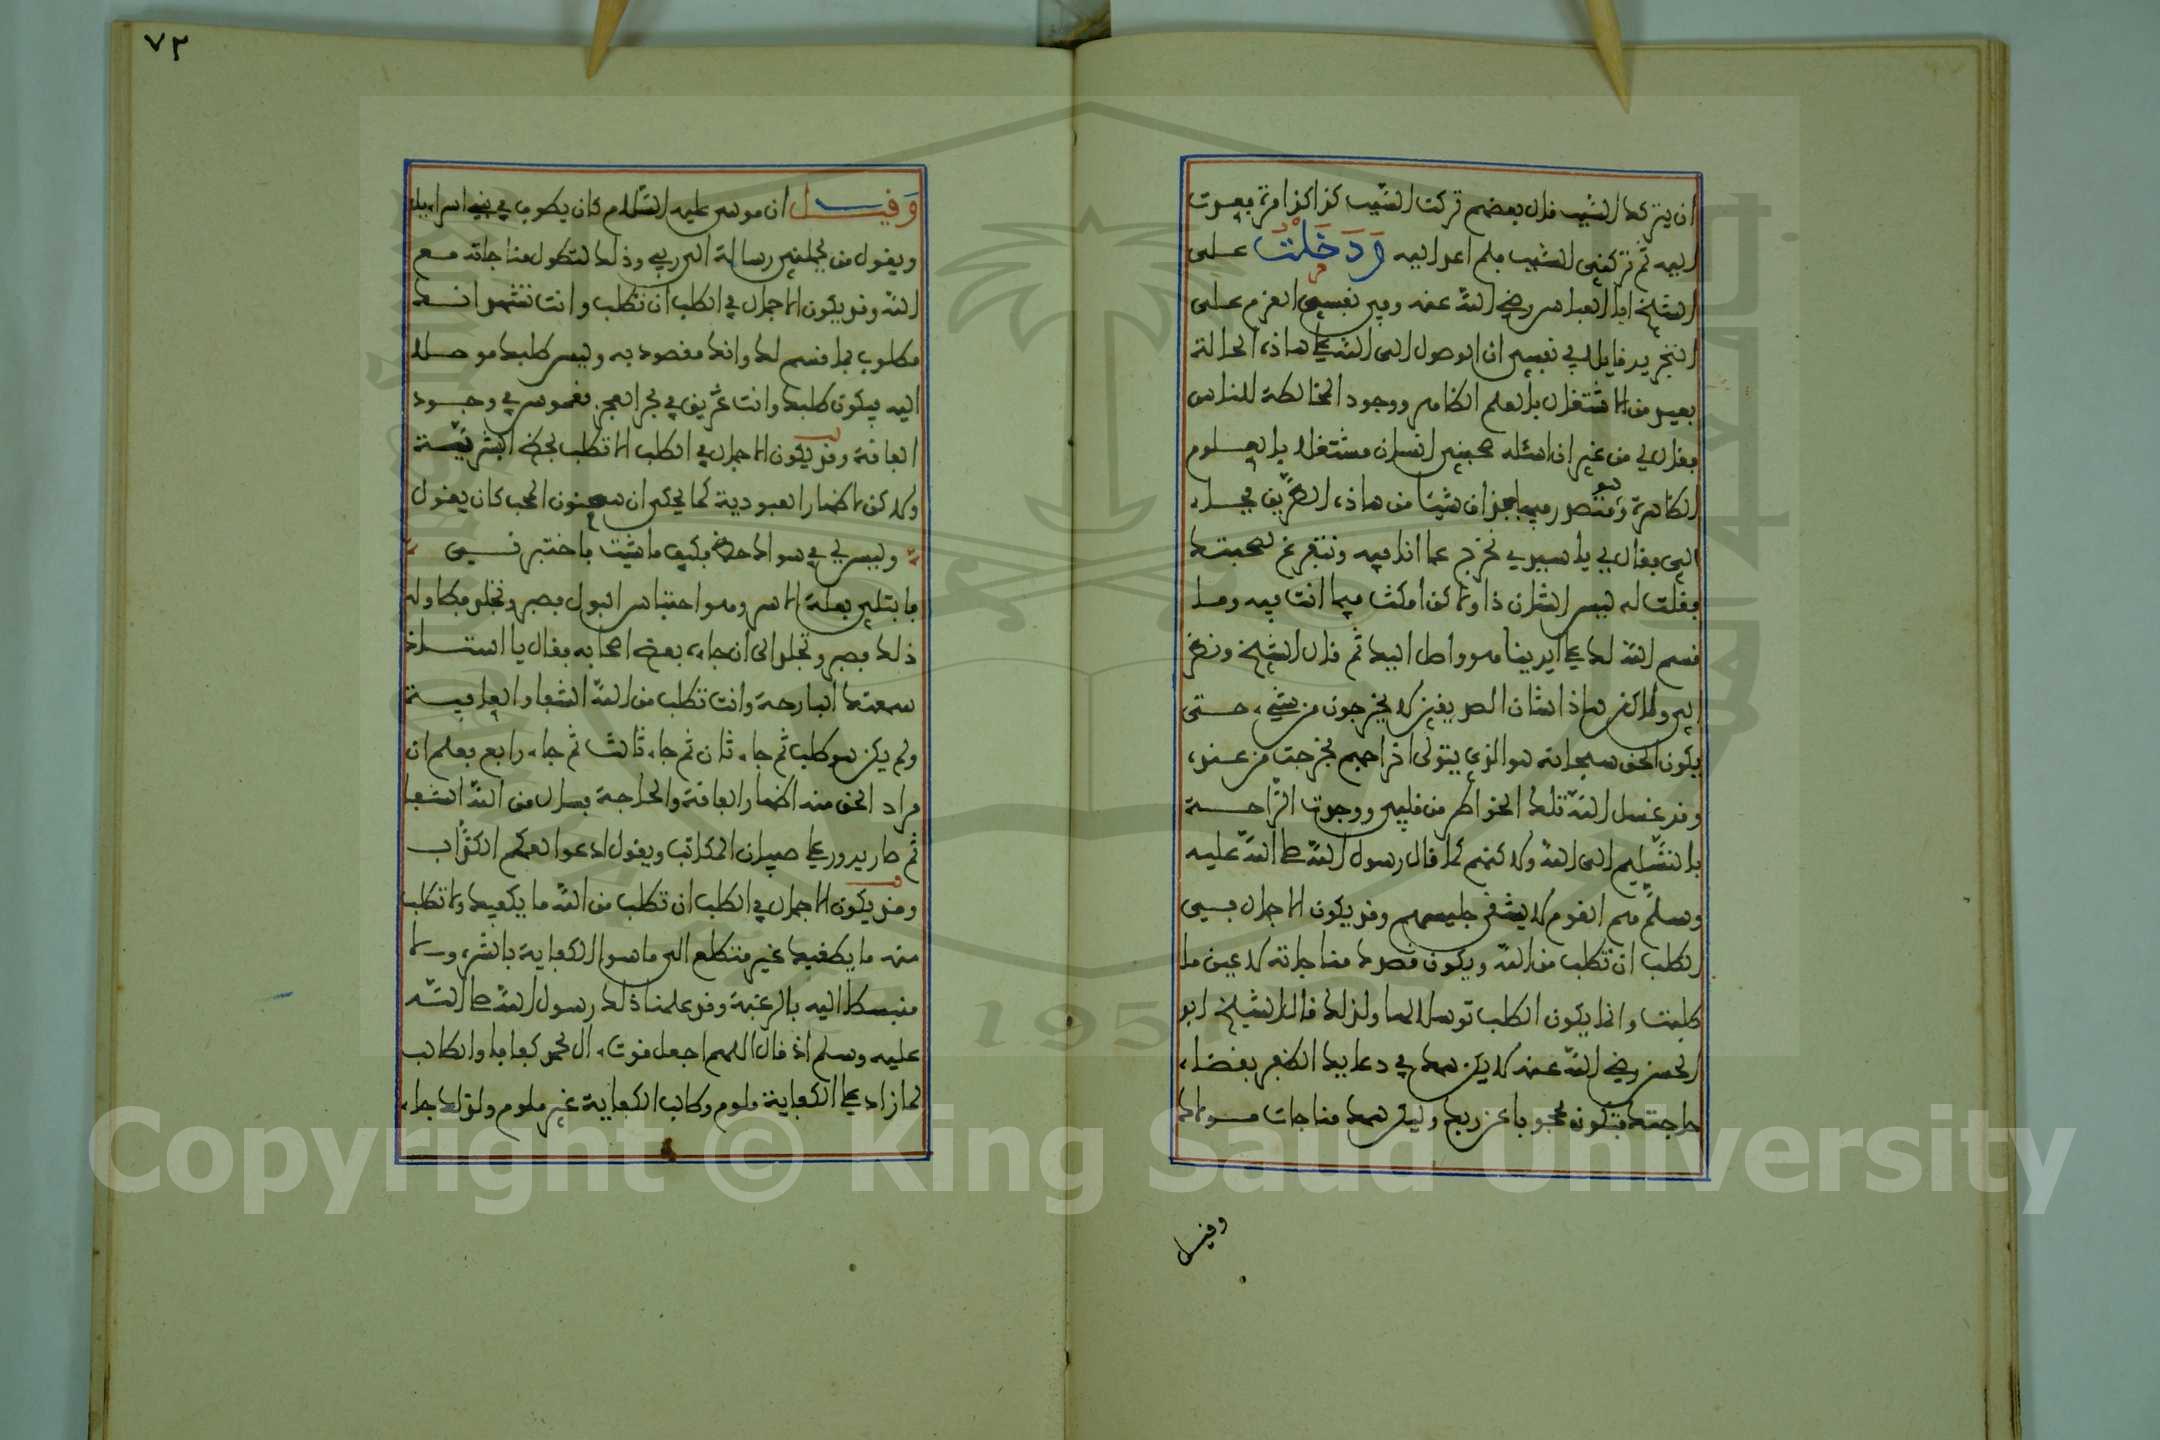 ان يتركك الشيء قال بعضهم تركت الشيء كذا كذا مرة فعدت
اليه ثم تركني الشيء فلم اعد اليه وَدَخَلْتُ على
الشيخ ابي العباس رضي الله عنه وفي نفسي العزم على
التجريد قايلا في نفسي ان الوصول الى الله على هاذه الحالة
بعيد من الاشتغال بالعلم الظاهر ووجود المخالطة للناس
فقال لي من غير ان اسئله صحبني انسان مشتغل بالعلوم
الظاهرة ومتصدر فيها فذاق شيئا من هاذه الطريق فجاء
الي فقال لي يا سيدي نخرج عما انا فيه ونتفرغ لصحبتك
فقلت له ليس الشان ذا ولاكن امكث فيما انت فيه وما
قسم الله لك على ايدينا هو واصل اليك ثم قال الشيخ ونظر
الي ولاكن هاذا شان الصديقين لا يخرجون من شيء حتى
يكون الحق سبحانه هو الذي يتولى اخراجهم فخرجت من عنده
وقد غسل الله تلك الخواطر من قلبي ووجدت الراحة
بالتسليم الى الله ولاكنهم كما قال رسول الله صلى الله عليه
وسلم هم القوم لا يشقى جليسهم وقد يكون الاجمال في
الطلب ان تطلب من الله ويكون قصدك مناجاته لا عين ما
طلبت وانما يكون الطلب توسلا لها ولذلك قال الشيخ ابو
الحسن رضي الله عنه لا يكن همك في دعايك الظفر بقضاء
حاجتك فتكون محجوبا عن ربك وليكن همك مناجات مولاك
وقيل
٧٢
وَقيل ان موسى عليه السلام كان يطوف في بني اسرايل
ويقول من يحملني رسالة الى ربي وذلك لتطول مناجاته مع
الله وقد يكون الاجمال في الطلب ان تطلب وانت تشهد انك
مطلوب بما قسم لك وانك مقصود به وليس طلبك موصلا
اليه فيكون طلبك وانت غريق في بحر العجز مغموس في وجود
الفاقة وقد يكون الاجمال في الطلب الا تطلب لحظ البشرية
ولاكن لاظهار العبودية كما يحكى ان سمنون المحب كان يقول
وليس لي في سواك حظ فكيف ما شيت فاختبرني
فابتلي بعلة الاسر وهو احتباس البول فصبر وتجلد فطاوله
ذلك فصبر وتجلد الى ان جاءه بعض اصحابه فقال يا استاذ
سمعتك البارحة وانت تطلب من الله الشفا والعافية
ولم يكن هو طلب ثم جاء ثان ثم جاء ثالث ثم جاء رابع فعلم ان
مراد الحق منه اظهار الفاقة والحاجة فسال من الله الشفا
ثم صار يدور على صبيان المكاتب ويقول ادعوا لعمكم الكذاب
وقد يكون الاجمال في الطلب ان تطلب من الله ما يكفيك ولا تطلب
منه ما يطغيك غير متطلع الى ما سوا الكفاية بالشره ولا
منبسطا اليه بالرغبة وقد علمنا ذلك رسول الله صلى الله
عليه وسلم اذ قال اللهم اجعل قوت ءال محمد كفافا والطالب
لما زاد على الكفاية ملوم وطالب الكفاية غير ملوم ولذلك جاء
Copyright © King Saud University
1957